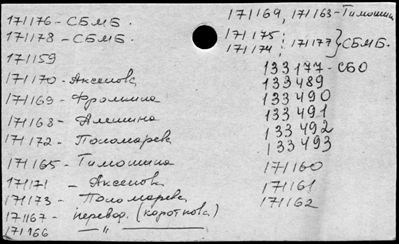 171176 - СБМБ.
171178 - СБМБ.
171159
171170 - Аксенова
171169 - Фромнина
171168 - Алешина
171172 - Поломарев
171165 - Тимошина
171171 - Аксенова
171173 - Поломарева
171167 - перевод. (Короткова)
171166 - " -
171164, 171163 - Тимошина
171175;
171174; 171177 } СБМБ.
133477 - СБО
133489
133490
133491
133492
133493
171160
171161
171162